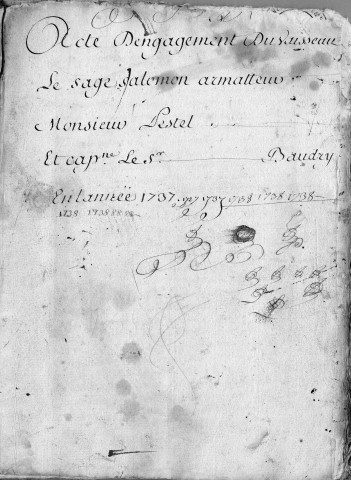 Acte Dengagement Du Vaisseau
Le sage Salomon armatteur
Monsieur Lestel
Et capne Le Sr Baudry
En lanneé 1737. 1737 1738 1738 1738
1738 1738